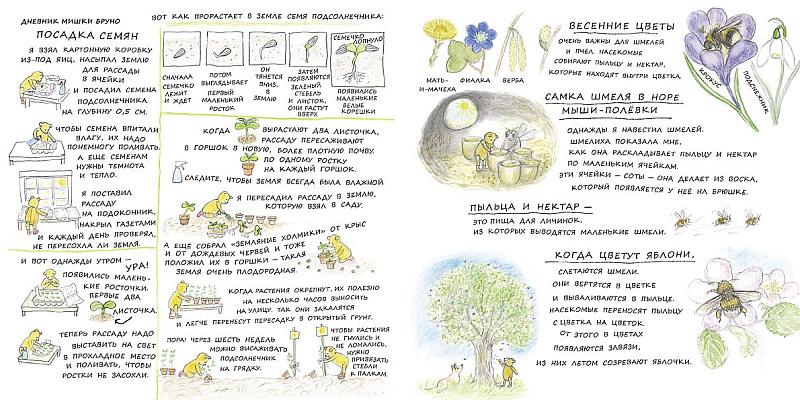 ДНЕВНИК МИШКИ БРУНО
ПОСАДКА СЕМЯН
Я ВЗЯЛ КАРТОННУЮ КОРОБКУ
ИЗ-ПОД ЯИЦ, НАСЫПАЛ ЗЕМЛЮ
ДЛЯ РАССАДЫ
В ЯЧЕЙКИ
И ПОСАДИЛ СЕМЕНА
ПОДСОЛНЕЧНИКА
НА ГЛУБИНУ 0,5 СМ.
ЧТОБЫ СЕМЕНА ВПИТАЛИ
ВЛАГУ, ИХ НАДО
ПОНЕМНОГУ ПОЛИВАТЬ.
А ЕЩЁ СЕМЕНАМ
НУЖНЫ ТЕМНОТА
И ТЕПЛО.
Я ПОСТАВИЛ
РАССАДУ
НА ПОДОКОННИК,
НАКРЫЛ ГАЗЕТАМИ
И КАЖДЫЙ ДЕНЬ ПРОВЕРЯЛ,
НЕ ПЕРЕСОХЛА ЛИ ЗЕМЛЯ.
И ВОТ ОДНАЖДЫ УТРОМ —
УРА!
ПОЯВИЛИСЬ МАЛЕНЬ-
КИЕ РОСТОЧКИ.
ПЕРВЫЕ ДВА
ЛИСТОЧКА.
ТЕПЕРЬ РАССАДУ НАДО
ВЫСТАВИТЬ НА СВЕТ
В ПРОХЛАДНОЕ МЕСТО
И ПОЛИВАТЬ, ЧТОБЫ
РОСТКИ НЕ ЗАСОХЛИ.
ВОТ КАК ПРОРАСТАЕТ В ЗЕМЛЕ СЕМЯ ПОДСОЛНЕЧНИКА:
СЕМЕЧКО
ЛОПНУЛО
СНАЧАЛА
СЕМЕЧКО
ЛЕЖИТ
И ЖДЁТ
ПОТОМ
ВЫГЛЯДЫВАЕТ
ПЕРВЫЙ
МАЛЕНЬКИЙ
РОСТОК
ОН
ТЯНЕТСЯ
ВНИЗ,
В
ЗЕМЛЮ
ЗАТЕМ
ПОЯВЛЯЮТСЯ
ЗЕЛЁНЫЙ
СТЕБЕЛЬ
И ЛИСТОК,
ОНИ РАСТУТ
ВВЕРХ
ПОЯВИЛИСЬ
МАЛЕНЬКИЕ
БЕЛЫЕ
КОРЕШКИ
КОГДА ВЫРАСТАЮТ ДВА ЛИСТОЧКА,
РАССАДУ ПЕРЕСАЖИВАЮТ
В ГОРШОК В НОВУЮ, БОЛЕЕ ПЛОТНУЮ ПОЧВУ.
ПО ОДНОМУ РОСТКУ
НА КАЖДЫЙ ГОРШОК.
СЛЕДИТЕ, ЧТОБЫ ЗЕМЛЯ ВСЕГДА БЫЛА ВЛАЖНОЙ
Я ПЕРЕСАДИЛ РАССАДУ В ЗЕМЛЮ,
КОТОРУЮ ВЗЯЛ В САДУ.
А ЕЩЁ СОБРАЛ «ЗЕМЛЯНЫЕ ХОЛМИКИ» ОТ КРЫС
И ОТ ДОЖДЕВЫХ ЧЕРВЕЙ И ТОЖЕ
ПОЛОЖИЛ ИХ В ГОРШКИ – ТАКАЯ
ЗЕМЛЯ ОЧЕНЬ ПЛОДОРОДНАЯ.
КОГДА РАСТЕНИЯ ОКРЕПНУТ, ИХ ПОЛЕЗНО
НА НЕСКОЛЬКО ЧАСОВ ВЫНОСИТЬ
НА УЛИЦУ. ТАК ОНИ ЗАКАЛЯТСЯ
И ЛЕГЧЕ ПЕРЕНЕСУТ ПЕРЕСАДКУ В ОТКРЫТЫЙ ГРУНТ.
ПОРА! ЧЕРЕЗ ШЕСТЬ НЕДЕЛЬ
МОЖНО ВЫСАЖИВАТЬ
ПОДСОЛНЕЧНИК
НА ГРЯДКУ.
ЧТОБЫ РАСТЕНИЯ
НЕ ГНУЛИСЬ И
НЕ ЛОМАЛИСЬ,
НУЖНО
ПРИВЯЗАТЬ
СТЕБЛИ
К ПАЛКАМ.
ВЕСЕННИЕ ЦВЕТЫ
ОЧЕНЬ ВАЖНЫ ДЛЯ ШМЕЛЕЙ
И ПЧЁЛ. НАСЕКОМЫЕ
СОБИРАЮТ ПЫЛЬЦУ И НЕКТАР,
КОТОРЫЕ НАХОДЯТ ВНУТРИ ЦВЕТКА.
МАТЬ-
И-МАЧЕХА
ФИАЛКА
ВЕРБА
КРОКУС
ПОДСНЕЖНИК
САМКА ШМЕЛЯ В НОРЕ
МЫШИ-ПОЛЁВКИ
ОДНАЖДЫ Я НАВЕСТИЛ ШМЕЛЕЙ.
ШМЕЛИХА ПОКАЗАЛА МНЕ,
КАК ОНА РАСКЛАДЫВАЕТ ПЫЛЬЦУ И НЕКТАР
ПО МАЛЕНЬКИМ ЯЧЕЙКАМ.
ЭТИ ЯЧЕЙКИ – СОТЫ – ОНА ДЕЛАЕТ ИЗ ВОСКА,
КОТОРЫЙ ПОЯВЛЯЕТСЯ У НЕЁ НА БРЮШКЕ.
ПЫЛЬЦА И НЕКТАР —
ЭТО ПИЩА ДЛЯ ЛИЧИНОК,
ИЗ КОТОРЫХ ВЫВОДЯТСЯ МАЛЕНЬКИЕ ШМЕЛИ.
КОГДА ЦВЕТУТ ЯБЛОНИ,
СЛЕТАЮТСЯ ШМЕЛИ.
ОНИ ВЕРТЯТСЯ В ЦВЕТКЕ
И ВЫВАЛИВАЮТСЯ В ПЫЛЬЦЕ.
НАСЕКОМЫЕ ПЕРЕНОСЯТ ПЫЛЬЦУ
С ЦВЕТКА НА ЦВЕТОК.
ОТ ЭТОГО В ЦВЕТАХ
ПОЯВЛЯЮТСЯ ЗАВЯЗИ,
ИЗ НИХ ЛЕТОМ СОЗРЕВАЮТ ЯБЛОЧКИ.